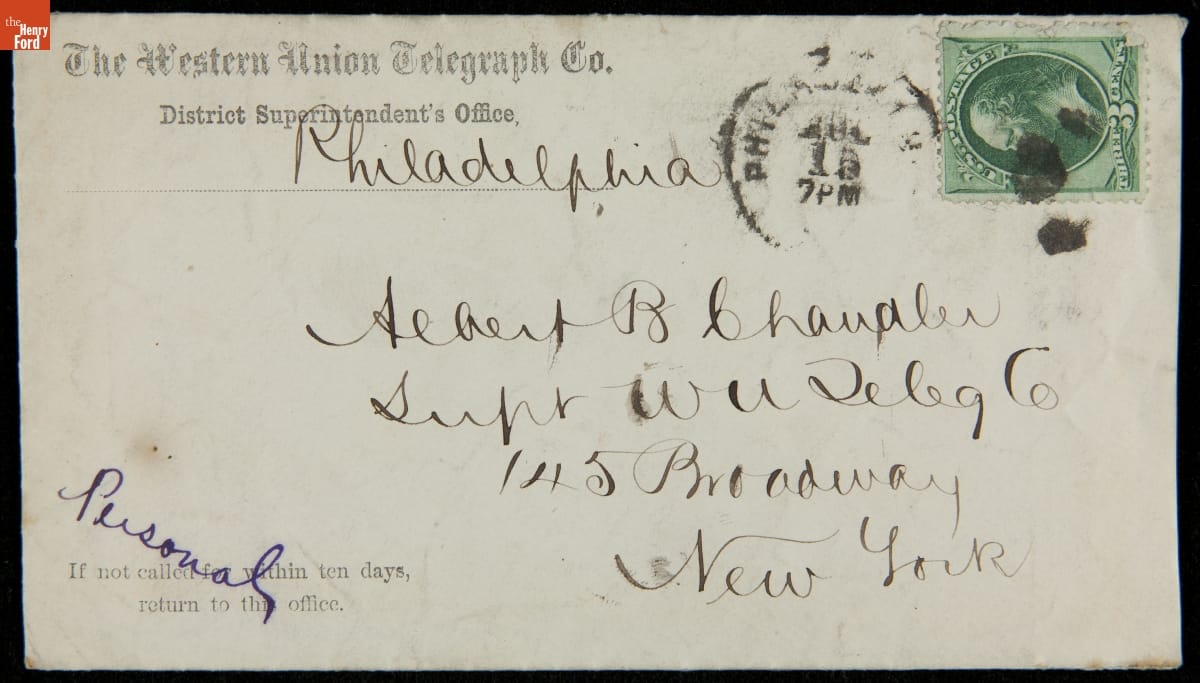 the
Henry
Ford
The Western Union Telegraph Co.
District Superintendent's Office,
Philadelphia
JUL
15
7PM
U.S. POSTAGE
Albert B Chandler
Supt W U Teleg Co
145 Broadway
New York
Personal
If not called for within ten days,
return to this office.